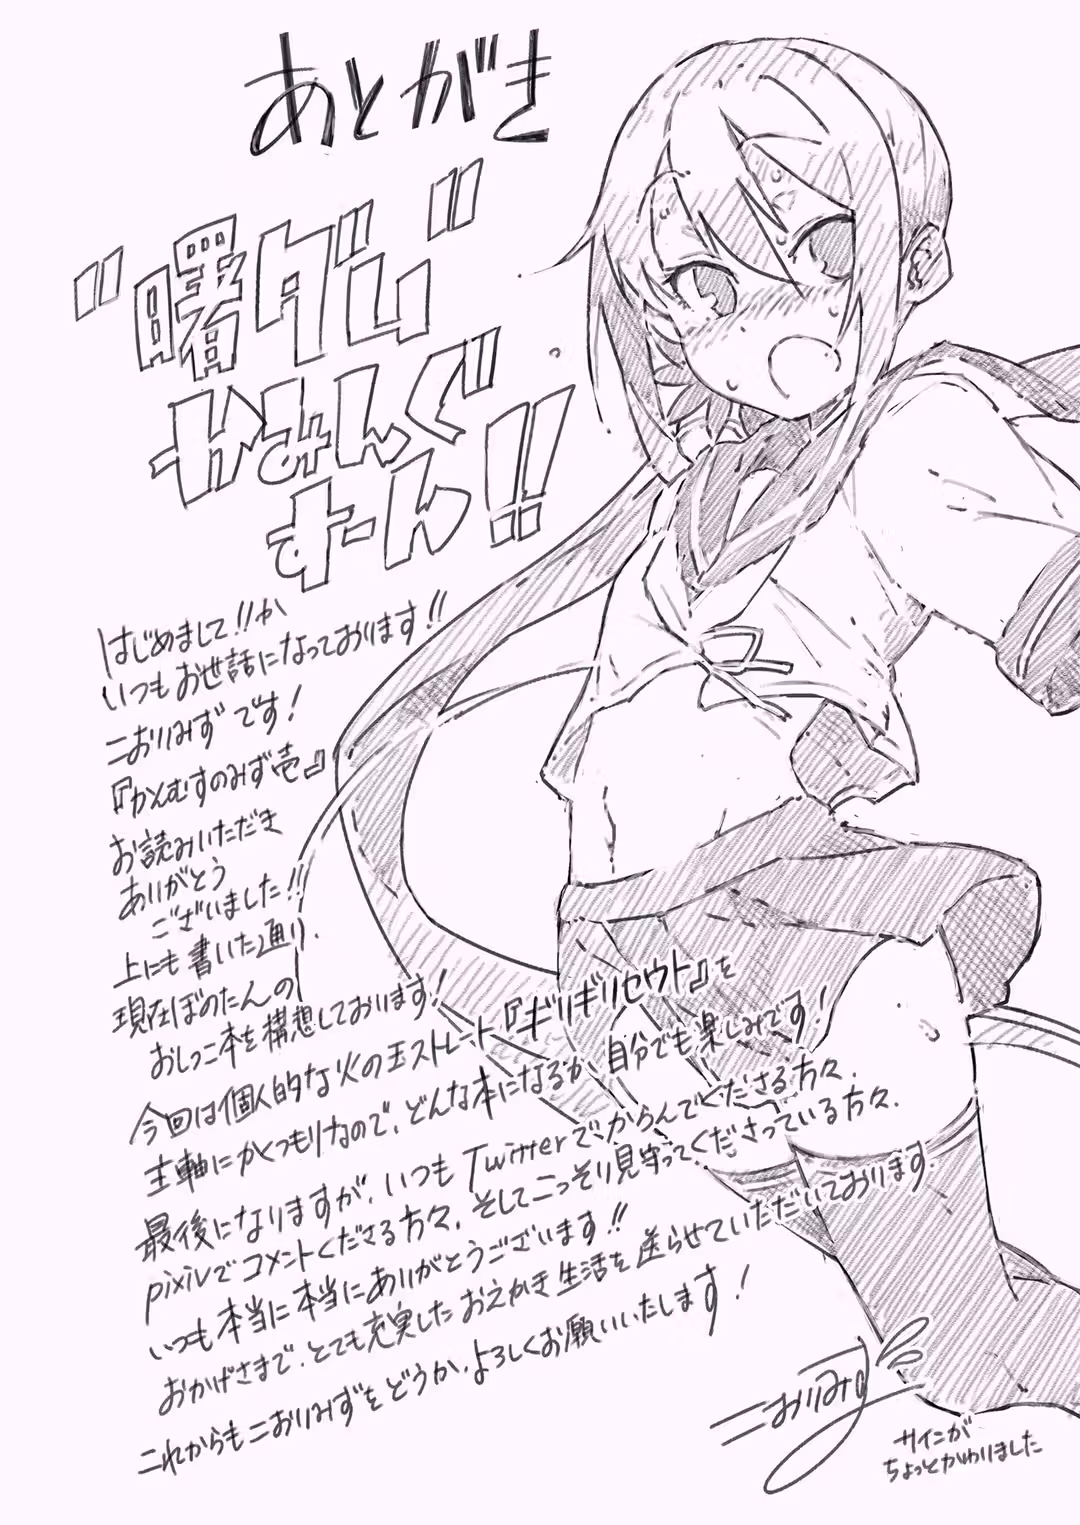 あとがき
"曙ダム"
かみんぐ"
すーん!!
はじめまして!!か
いつもお世話になっております!!
二おりみずです!
『かんむすのみず壱』
お読みいただき
ありがとう
ございました!!
上にも書いた通り、
現在ぼのたんの
おしっこ本を構想しております!
今回は個人的な火の玉ストレート『ギリギリセウト』を
主軸にかくつもりなので、どんな本になるか、自分でも楽しみです!
最後になりますが、いつもTwitterでからんでくださる方々、
pixivでコメントくださる方々、そしてこっそり見守ってくださっている方々、
いつも本当に本当にありがとうございます!!
おかげさまで、とても充実したおえかき生活を送らせていただいております。
これからも二おりみずをどうか、よろしくお願いいたします!
二おりみず
サインが
ちょっとかわりました